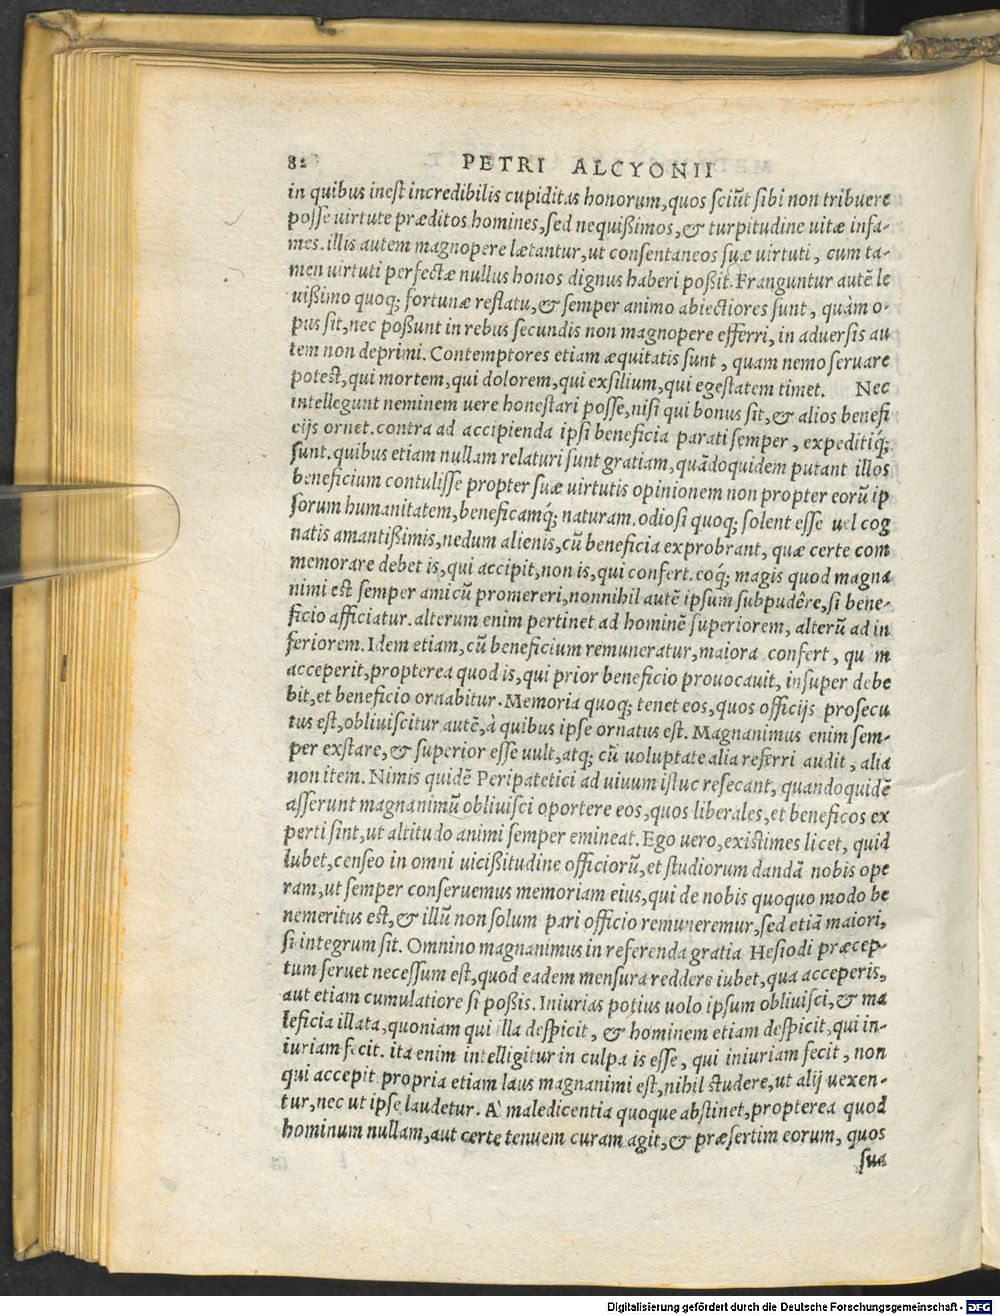 82 PETRI ALCYONII
in quibus inest incredibilis cupiditas honorum, quos sciūt sibi non tribuere
posse uirtute præditos homines, sed nequißimos, & turpitudine uitæ infa-
mes. illis autem magnopere lætantur, ut consentaneos suæ uirtuti, cum ta-
men uirtuti perfectæ nullus honos dignus haberi poßit. Franguntur autē le
uißimo quoq; fortunæ reflatu, & semper animo abiectiores sunt, quàm o-
pus sit, nec poßunt in rebus secundis non magnopere efferri, in aduersis au
tem non deprimi. Contemptores etiam æquitatis sunt, quam nemo seruare
potest, qui mortem, qui dolorem, qui exsilium, qui egestatem timet. Nec
intellegunt neminem uere honestari posse, nisi qui bonus sit, & alios benefi
cijs ornet. contra ad accipienda ipsi beneficia parati semper, expeditiq́;
sunt. quibus etiam nullam relaturi sunt gratiam, quādoquidem putant illos
beneficium contulisse propter suæ uirtutis opinionem non propter eorū ip
sorum humanitatem, beneficamq́; naturam. odiosi quoq; solent esse uel cog
natis amantißimis, nedum alienis, cū beneficia exprobrant, quæ certe com
memorare debet is, qui accipit, non is, qui confert. eoq́; magis quod magna
nimi est semper amicū promereri, nonnihil autē ipsum subpudêre, si bene-
ficio afficiatur. alterum enim pertinet ad hominē superiorem, alterū ad in
feriorem. Idem etiam, cū beneficium remuneratur, maiora confert, qu m
acceperit, propterea quod is, qui prior beneficio prouocauit, insuper debe
bit, et beneficio ornabitur. Memoria quoq; tenet eos, quos officijs prosecu
tus est, obliuiscitur autē, à quibus ipse ornatus est. Magnanimus enim sem-
per exstare, & superior esse uult, atq; cū uoluptate alia referri audit, alia
non item. Nimis quidē Peripatetici ad uiuum istuc resecant, quandoquidē
asserunt magnanimū obliuisci oportere eos, quos liberales, et beneficos ex
perti sint, ut altitudo animi semper emineat. Ego uero, existimes licet, quid
lubet, censeo in omni uicißitudine officiorū, et studiorum dandā nobis ope
ram, ut semper conseruemus memoriam eius, qui de nobis quoquo modo be
nemeritus est, & illū non solum pari officio remuneremur, sed etiā maiori,
si integrum sit. Omnino magnanimus in referenda gratia Hesiodi præcep-
tum seruet necessum est, quod eadem mensura reddere iubet, qua acceperis,
aut etiam cumulatiore si poßis. Iniurias potius uolo ipsum obliuisci, & ma
leficia illata, quoniam qui illa despicit, & hominem etiam despicit, qui in-
iuriam fecit. ita enim intelligitur in culpa is esse, qui iniuriam fecit, non
qui accepit. propria etiam laus magnanimi est, nihil studere, ut alij uexen-
tur, nec ut ipse laudetur. A maledicentia quoque abstinet, propterea quod
hominum nullam, aut certe tenuem curam agit, & præsertim eorum, quos
sua
Digitalisierung gefördert durch die Deutsche Forschungsgemeinschaft - DFG